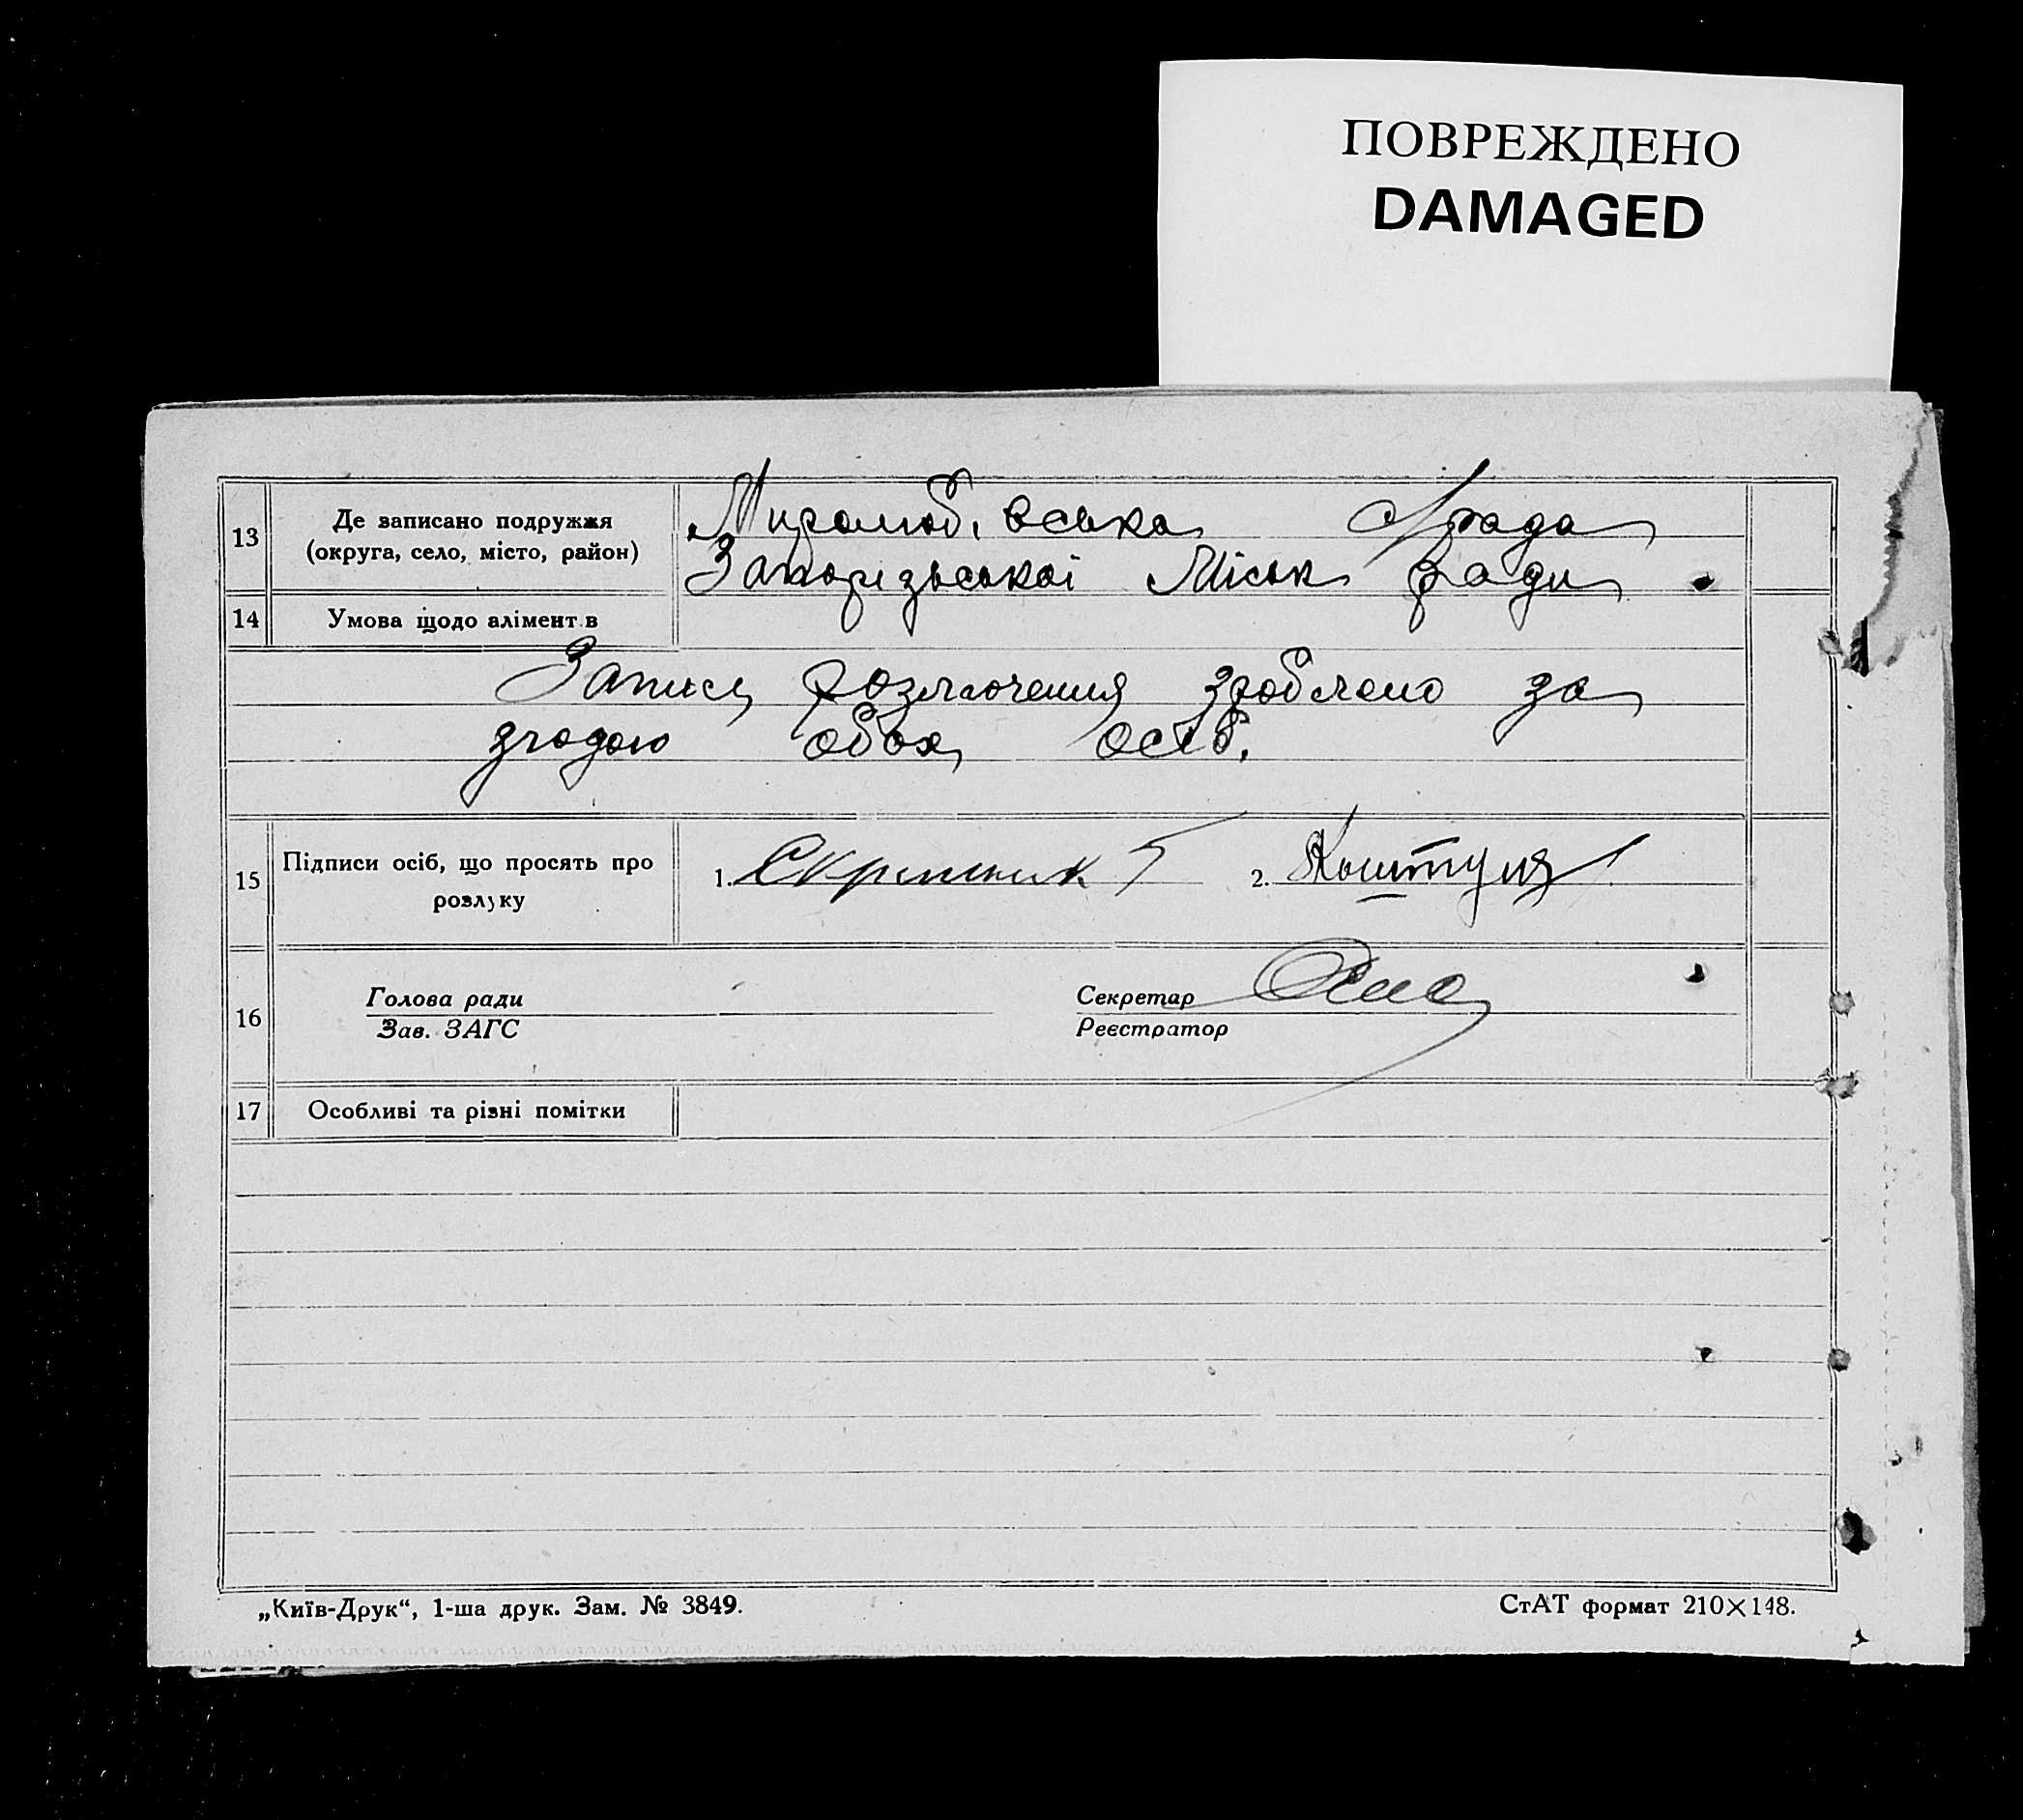 ПОВРЕЖДЕНО
DAMAGED
13
Де записано подружжя
(округа, село, місто, район)
Миролюбівська С/рада
Запорізьської Міськ ради
14
Умова щодо алімент в
Запис розлючення зроблено за
згодою обох осіб.
15
Підписи осіб, що просять про
розлуку
1. Скрипник Г
2. Коштуля
16
Голова ради
Зав. ЗАГС
Секретар
Реєстратор
17
Особливі та різні помітки
„Київ-Друк“, 1-ша друк. Зам. № 3849.
СтАТ формат 210×148.